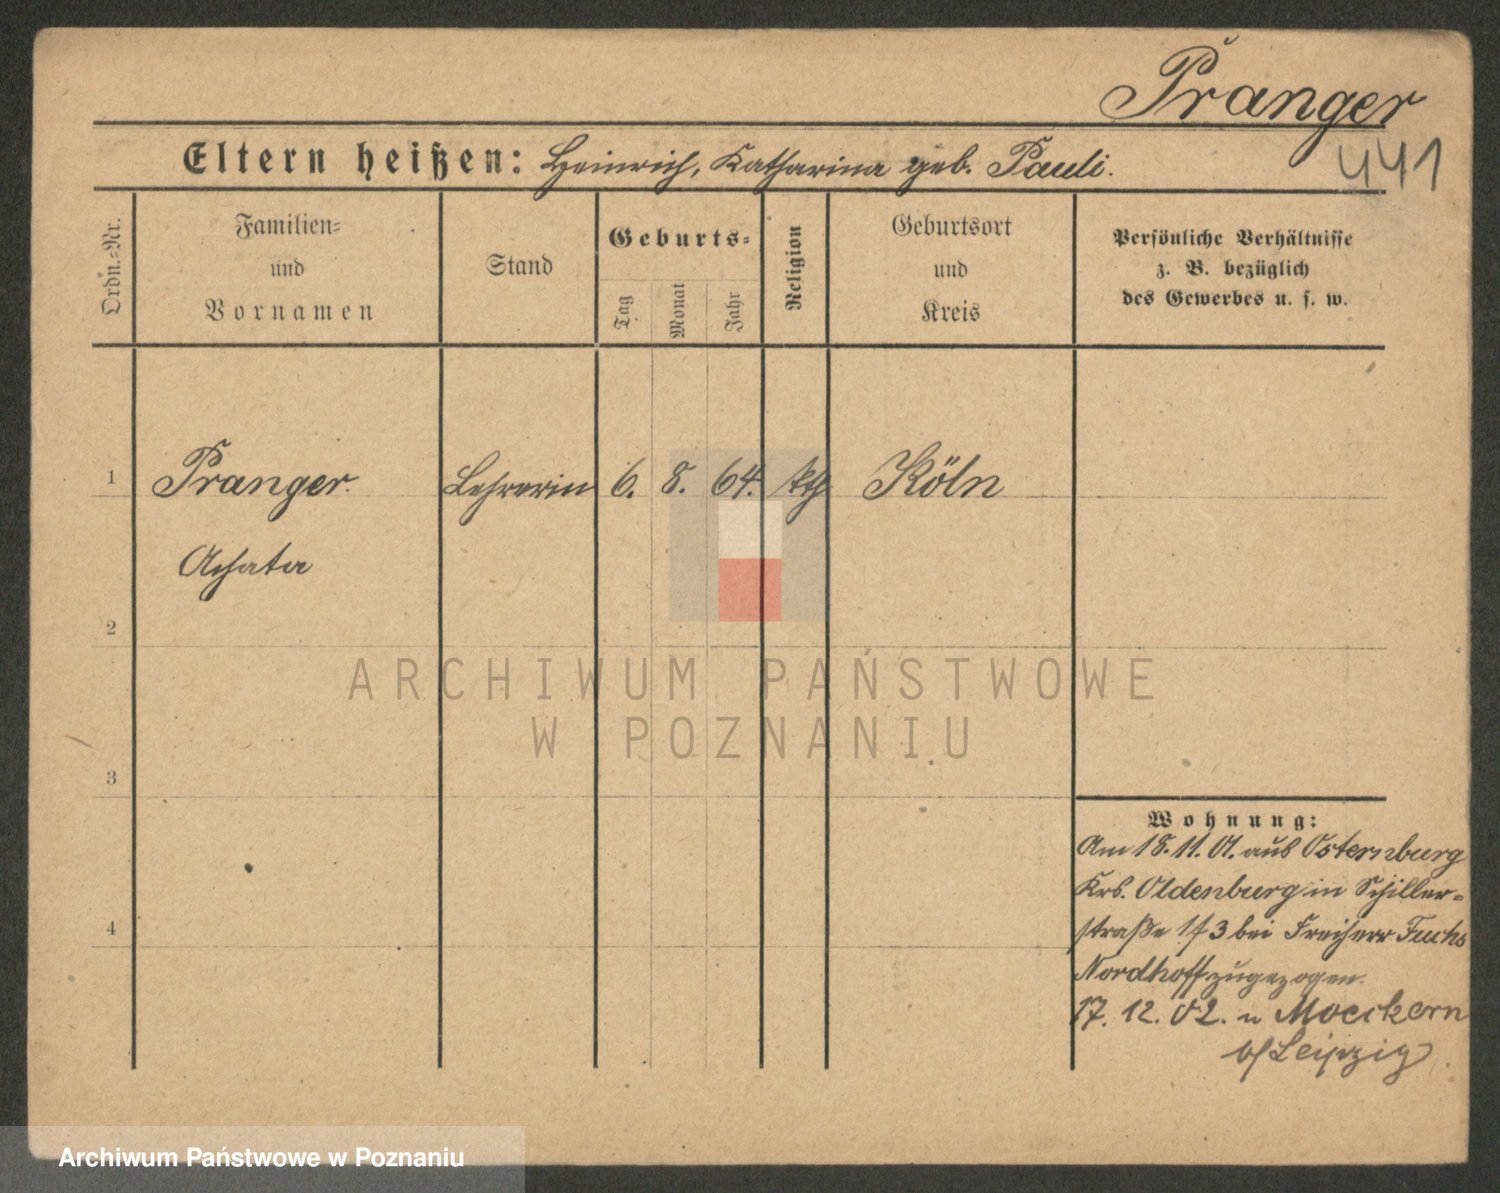 Pranger
441
Eltern heißen: Heinrich, Katharina geb. Pauli.
Ordn.-Nr.
Familien-
und
Vornamen
Stand
Geburts-
Tag
Monat
Jahr
Religion
Geburtsort
und
Kreis
Persönliche Verhältnisse
z. B. bezüglich
des Gewerbes u. s. w.
1
Pranger
Lehrerin
6.
8.
64.
kth
Köln
Achata
2
ARCHIWUM PAŃSTWOWE
W POZNANIU
3
4
Wohnung:
Am 18. 11. 01. aus Osternburg
Krs. Oldenburg in Schiller-
straße 1 3 bei Freiherr Fuchs
Nordhoff zugezogen.
17. 12. 02. n Moeckern
b/ Leipzig
Archiwum Państwowe w Poznaniu